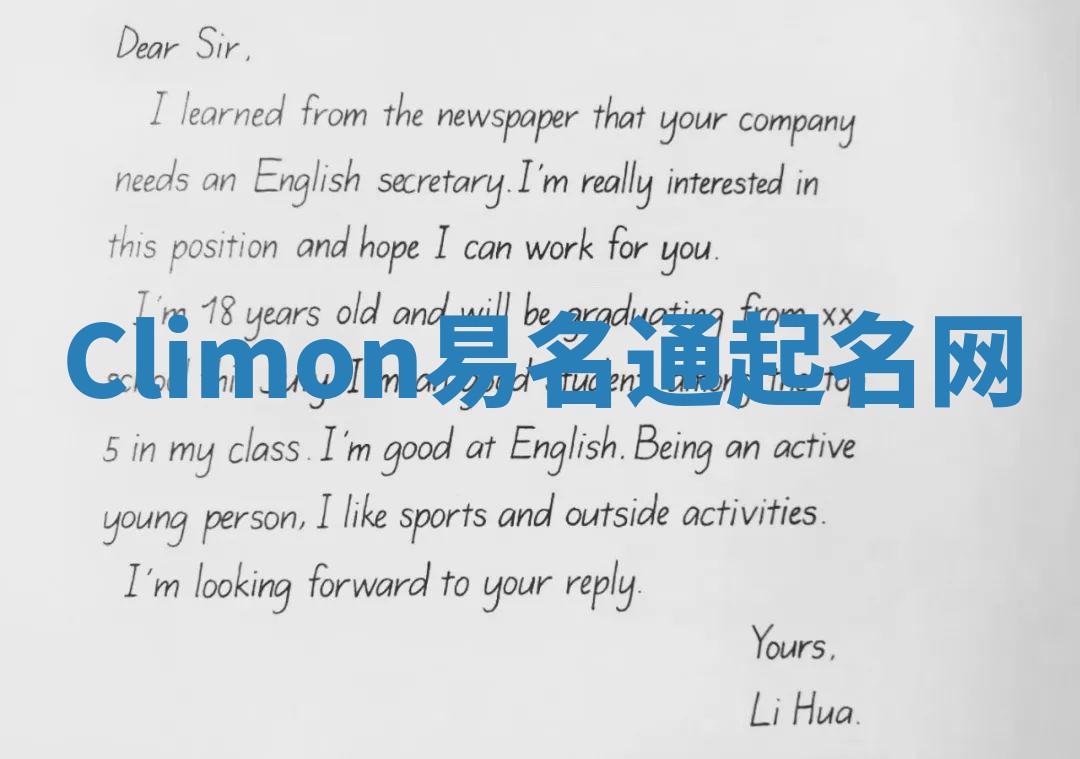 Dear Sir,
I learned from the newspaper that your company
needs an English secretary. I'm really interested in
this position and hope I can work for you.
I'm 18 years old and will be graduating from xx
Climon易名通起名网
school this July. I'm an good student among the top
5 in my class. I'm good at English. Being an active
young person, I like sports and outside activities.
I'm looking forward to your reply.
Yours,
Li Hua.